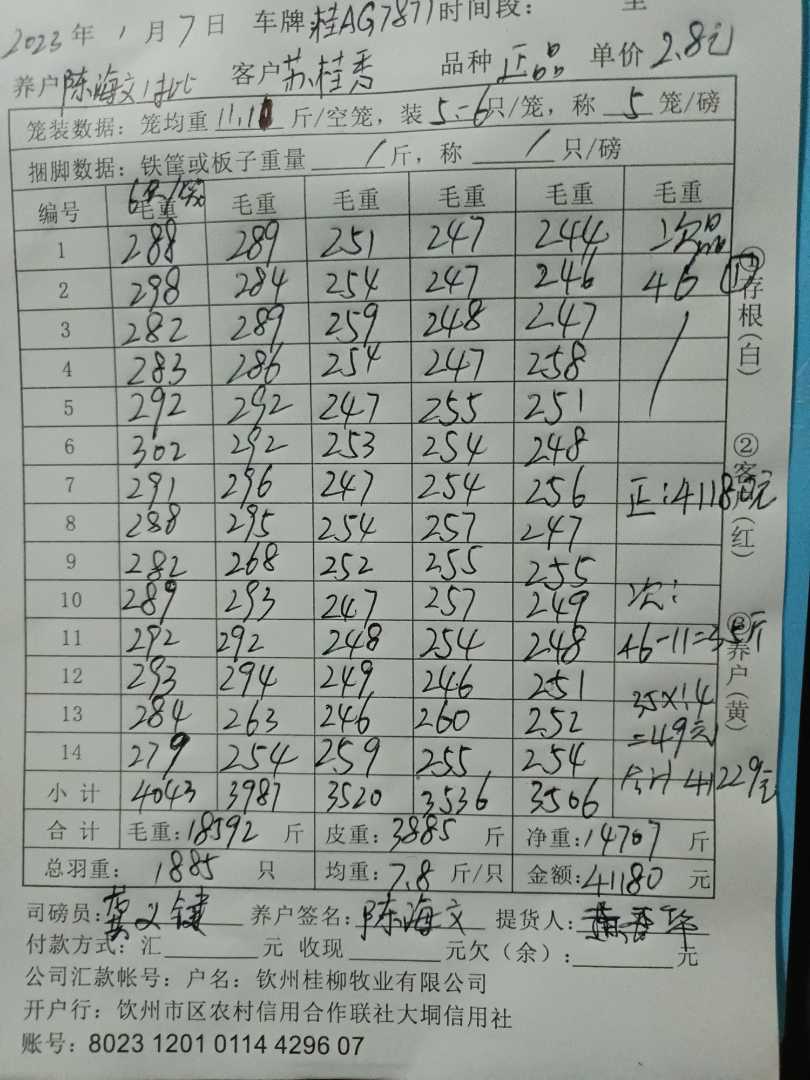 2023年 1月7日 车牌:桂AG7871时间段: 至
养户陈海文1批 客户苏桂秀 品种正品 单价2.8元
笼装数据:笼均重11.10斤/空笼,装5.-6只/笼,称5笼/磅
捆脚数据:铁筐或板子重量/斤,称/只/磅
6只/笼
编号 毛重 毛重 毛重 毛重 毛重 毛重
1 288 289 251 247 244 次品
2 298 284 254 247 246 46 ①
3 282 289 259 248 247 /
4 283 286 254 247 258
5 292 292 247 255 251
6 302 292 253 254 248
7 291 296 247 254 256 正:41180元
8 288 295 254 257 247
9 282 268 252 255 255
10 289 293 247 257 249 次:
11 292 292 248 254 248 46-11=35斤
12 293 294 249 246 251 35×1.4
13 284 263 246 260 252 =49元
14 279 254 259 255 254 合计 41229元
小计 4043 3987 3520 3536 3506
合计 毛重:18592 斤 皮重:3885 斤 净重:14707 斤
总羽重: 1885 只 均重:7.8 斤/只 金额:41180 元
①存根(白) ②客户(红) ③养户(黄)
司磅员: 养户签名:陈海文 提货人:
付款方式:汇 元 收现 元欠(余): 元
公司汇款帐号:户名:钦州桂柳牧业有限公司
开户行:钦州市区农村信用合作联社大垌信用社
账号:8023 1201 0114 4296 07